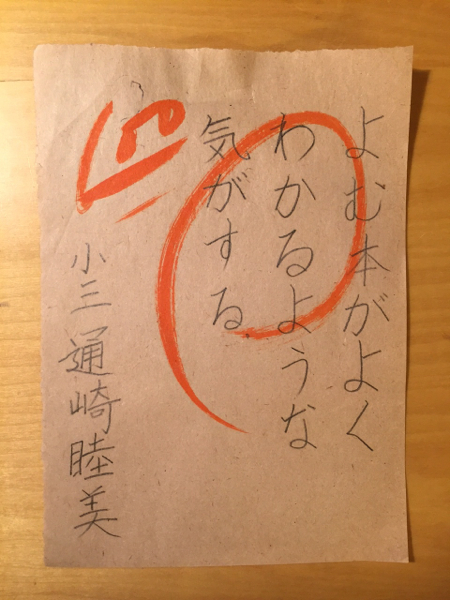 よむ本がよく
わかるような
気がする
小三 通崎睦美